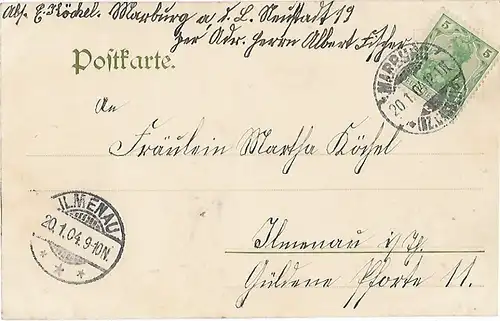 Abs. E. Köchel. Marburg a. d. L. Neustadt 19
per Adr. Herrn Albert Fischer
Postkarte.
5 5
MARBURG
20.1.04.
(BZ. CASSEL)
An
Fräulein Martha Köchel
ILMENAU
20.1.04. 9-10N.
Ilmenau i/Th.
Güldene Pforte 11.